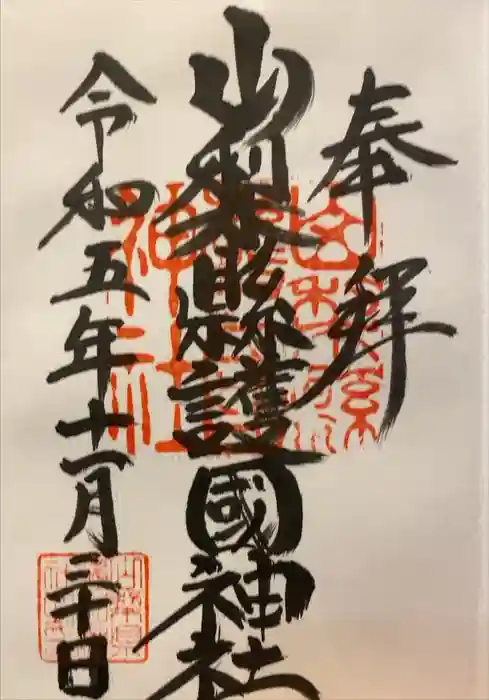 奉拝
山梨縣護國神社
令和五年十一月三十日